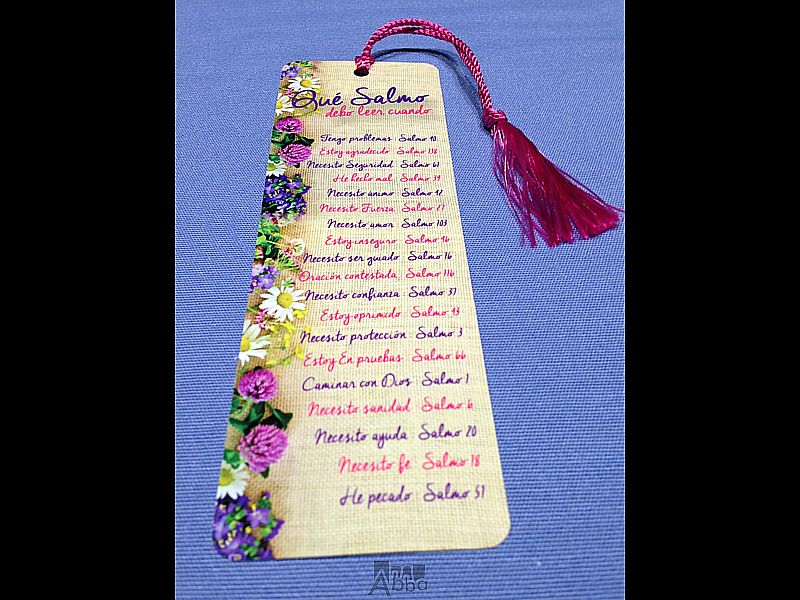 Qué Salmo
debo leer cuando
Tengo problemas Salmo 10
Estoy agradecido Salmo 138
Necesito Seguridad Salmo 61
He hecho mal Salmo 39
Necesito ánimo Salmo 42
Necesito Fuerza Salmo 27
Necesito amor Salmo 103
Estoy inseguro Salmo 46
Necesito ser guiado Salmo 16
Oración contestada Salmo 116
Necesito confianza Salmo 37
Estoy oprimido Salmo 43
Necesito protección Salmo 3
Estoy En pruebas Salmo 66
Caminar con Dios Salmo 1
Necesito sanidad Salmo 6
Necesito ayuda Salmo 20
Necesito fe Salmo 18
He pecado Salmo 51
Abba